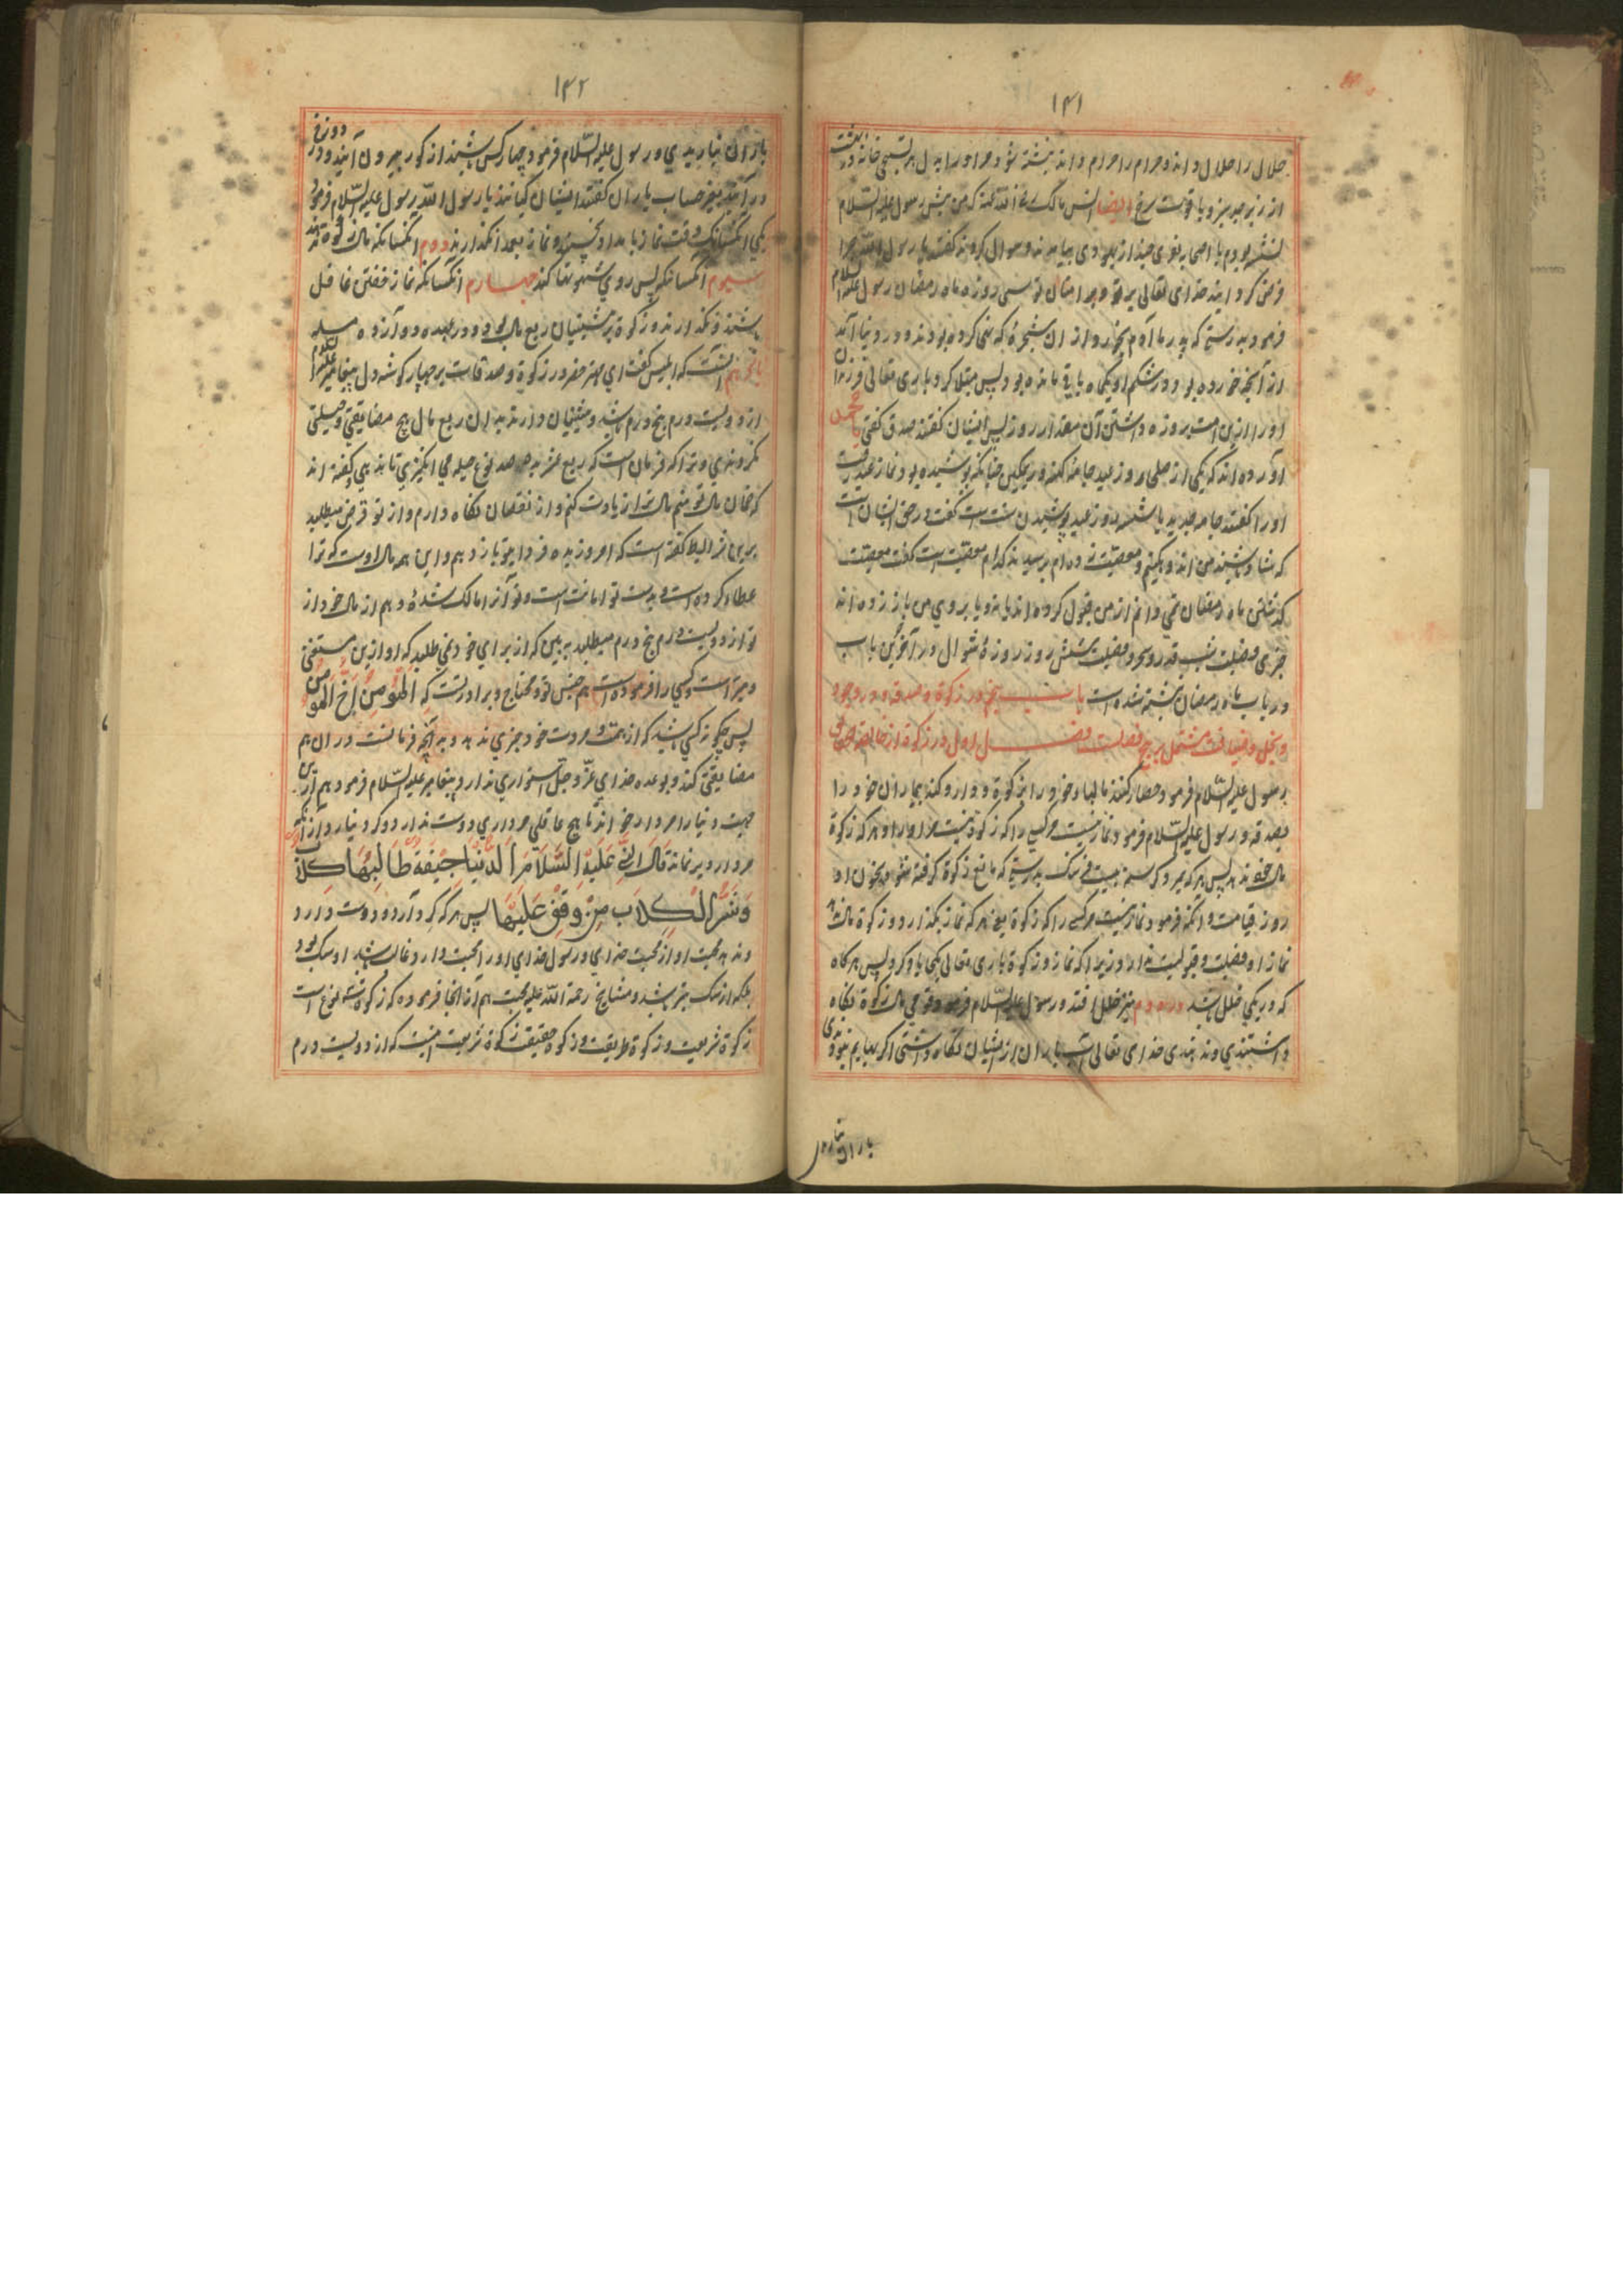 ۱۴۱
حلال را حلال داند و حرام را حرام داند نبشته شود مر او را بدل هر تسبیحی خانه در بهشت
از زبرجد سبز و یاقوت سرخ ایضا انس مالک رضی الله عنه گفت که من پیش رسول علیه السلام
نشسته بودم با اصحاب نفری چند از یهودی بیامدند و سوال کردند گفتند یا رسول الله چرا
فرض گردانید خدای تعالی بر تو و بر امتان تو سی روزه ماه رمضان رسول علیه السلام
فرمود بدرستی که پدر ما آدم بخورد از آن شجره که نهی کرده بودند و در دنیا آمد
از آنچه خورده بود در شکم او یکماه باقی مانده بود پس مبتلا کرد باری تعالی فرزندان
او را ازین امت بروزه داشتن آن مقدار روز پس ایشان گفتند صدق گفتی یا محمد
آورده اند که یکی از صلحا روز عید جامه کهنه و ریمگین چنانکه پوشیده بود نماز عید رفت
او را گفتند جامه جدید یا شسته روز عید پوشیدن سنت است گفت در حق ایشان است
که شاد باشند من اندوهگینم و مصیبت زده ام پرسیدند کدام مصیبت است گفت مصیبت
گذشتن ماه رمضان نمی دانم از من قبول کرده اند یا نه و یا بر روی من باز زده اند
جزی فضیلت شب قدر و سحر و فضیلت شش روز روزهٔ شوال در آخر این باب
در باب ماه رمضان نبشته شده است باب پنجم در زکوة و صدقه و در وجود
و بخل و ضیافت مشتمل بر پنج فصلست فصل اول در زکوة
رسول علیه السلام فرمود حصار کنند مالهاء خود را بزکوة و دارو کنند بیماران خود را
بصدقه و رسول علیه السلام فرمود نماز نیست مر کسی را که زکوة نیست مر او را و هر که زکوة
مال خود ندهد پس هر که بمیرد گرسنه
روز قیامت و آنکه فرمود نماز نیست مر کسی را که زکوة یعنی هر که نماز بگذارد و زکوة مال ندهد
نماز او فضیلت و قبولیت ندارد زیرا که نماز و زکوة باری تعالی یکجا یاد کرد پس هرگاه
که در یکی خلل باشد در دوم نیز خلل افتد و رسول علیه السلام فرمود قومی مال زکوة نگاه
داشتندی و ندهندی خدای تعالی باران از ایشان نگاه داشتی اگر بهایم نبودندی
باران نباریدی
۱۴۲
باران نباریدی و رسول علیه السلام فرمود چهار کس باشند از گور بیرون آیند و در دوزخ
در آیند بغیر حساب یاران گفتند ایشان کیانند یا رسول الله رسول علیه السلام فرمود
یکی آنکسانیکه وقت نماز بامداد بخسپند و نماز بعمد نگذارند دوم آنکسانیکه مال زکوة ندهند
سیوم آنکسانیکه پس روی شهوتها کنند چهارم آنکسانیکه نماز خفتن غافل
باشند و نگذارند و زکوة
پنجم آنست که ابلیس گفت ای مهتر خضر در زکوة و صدقات
از دویست درم پنج درم باشد و پیشینیان دادند بدان ربع مال هیچ مضایقتی و حیلتی
نکردندی و ترا که فرمان است که ربع عشر بده صد نوع حیله می انگیزی تا ندهی و گفته اند
که ضمان مال تو منم مال ترا زیادت کنم و از نقصان نگاه دارم و از تو قرض میطلبد
برین شرایط گفته است که امروز بده فردا بتو باز دهم و این همه مال اوست که ترا
عطا کرده است و بدست تو امانت است و تو آنرا مالک شدهٔ و هم از مال خود از
تو از دویست درم پنج درم میطلبد ببین که از برای خود نمی طلبد که او ازین مستغنی
و مبراست و کسی را فرموده است هم جنس تو و محتاج و برادر تست که المؤمن اخ المؤمن
پس چگونه کسی باشد که از همت و مروت خود چیزی ندهد و به آنچه فرمانست در آن هم
مضایقتی کند و بوعده خدای عز و جل استواری ندارد و پیغامبر علیه السلام فرمود هم ازین
جهت دنیا را مردار خواند تا هیچ عاقلی مرداری دوست ندارد و گرد نیارد از آنکه
مردار دیر نماند قال النبی علیه السلام الدنیا جیفة طالبها کلاب
وشر الکلاب من وقف علیها پس هر که گرد آرد و دوست دارد
و ندهد محبت او از محبت خدای و رسول خدای او را محبت دارد و غالب باشد او سگ بود
بلکه از سگ بتر باشد و مشایخ رحمة الله علیه بجهت هم از اینجا فرموده که زکوة سه نوع است
زکوة شریعت و زکوة طریقت و زکوة حقیقت زکوة شریعت اینست که از دویست درم